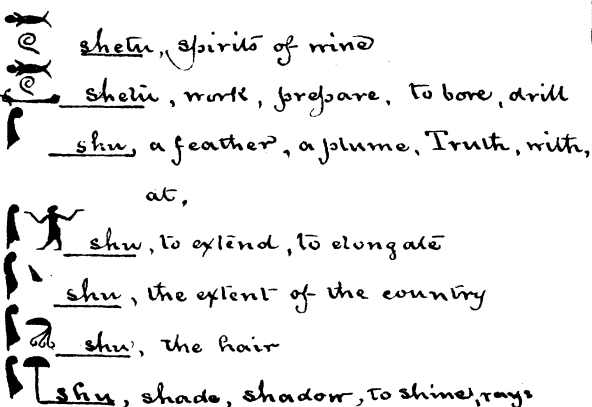 shetu, spirits of wine
shetu, work, prepare, to bore, drill
shu, a feather, a plume, Truth, with,
at,
shu, to extend, to elongate
shu, the extent of the country
shu, the hair
shu, shade, shadow, to shine, rays